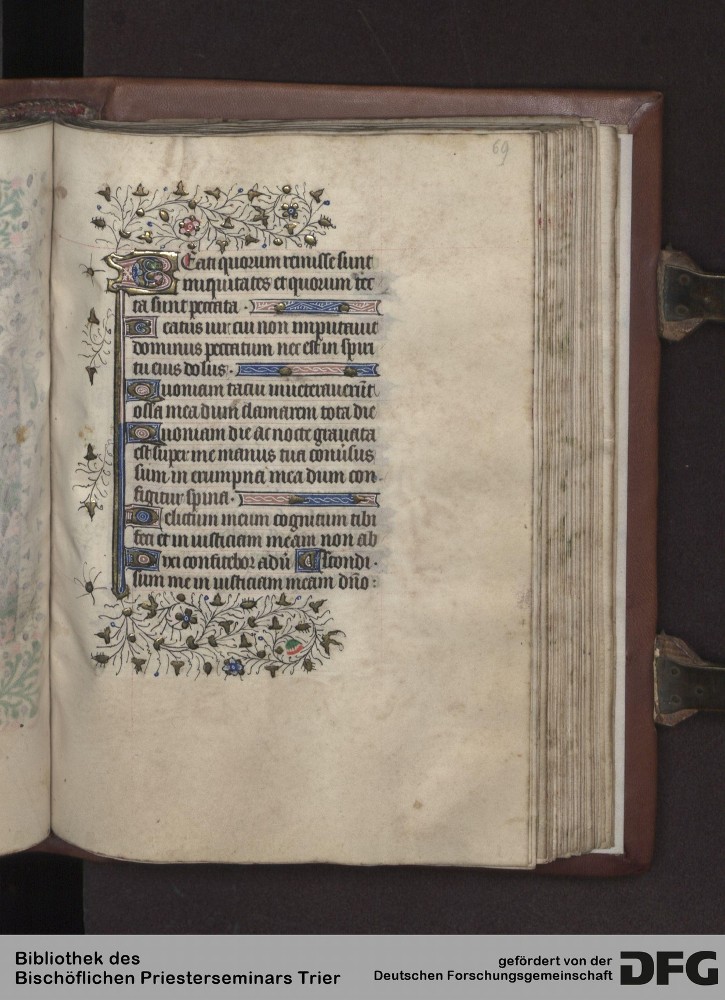 69
Beati quorum remisse sunt
iniquitates et quorum tec
ta sunt peccata.
Beatus vir cui non imputavit
dominus peccatum nec est in spiri
tu eius dolus.
Quoniam tacui inveteraverūt
ossa mea dum clamarem tota die
Quoniam die ac nocte gravata
est super me manus tua conversus
sum in erumpna mea dum con
figitur spina.
Delictum meum cognitum tibi
feci et iniusticiam meam non ab
Dixi confitebor adū Abscondi.
sum me iniusticiam meam dn̄o:
Bibliothek des
Bischöflichen Priesterseminars Trier
gefördert von der
Deutschen Forschungsgemeinschaft
DFG